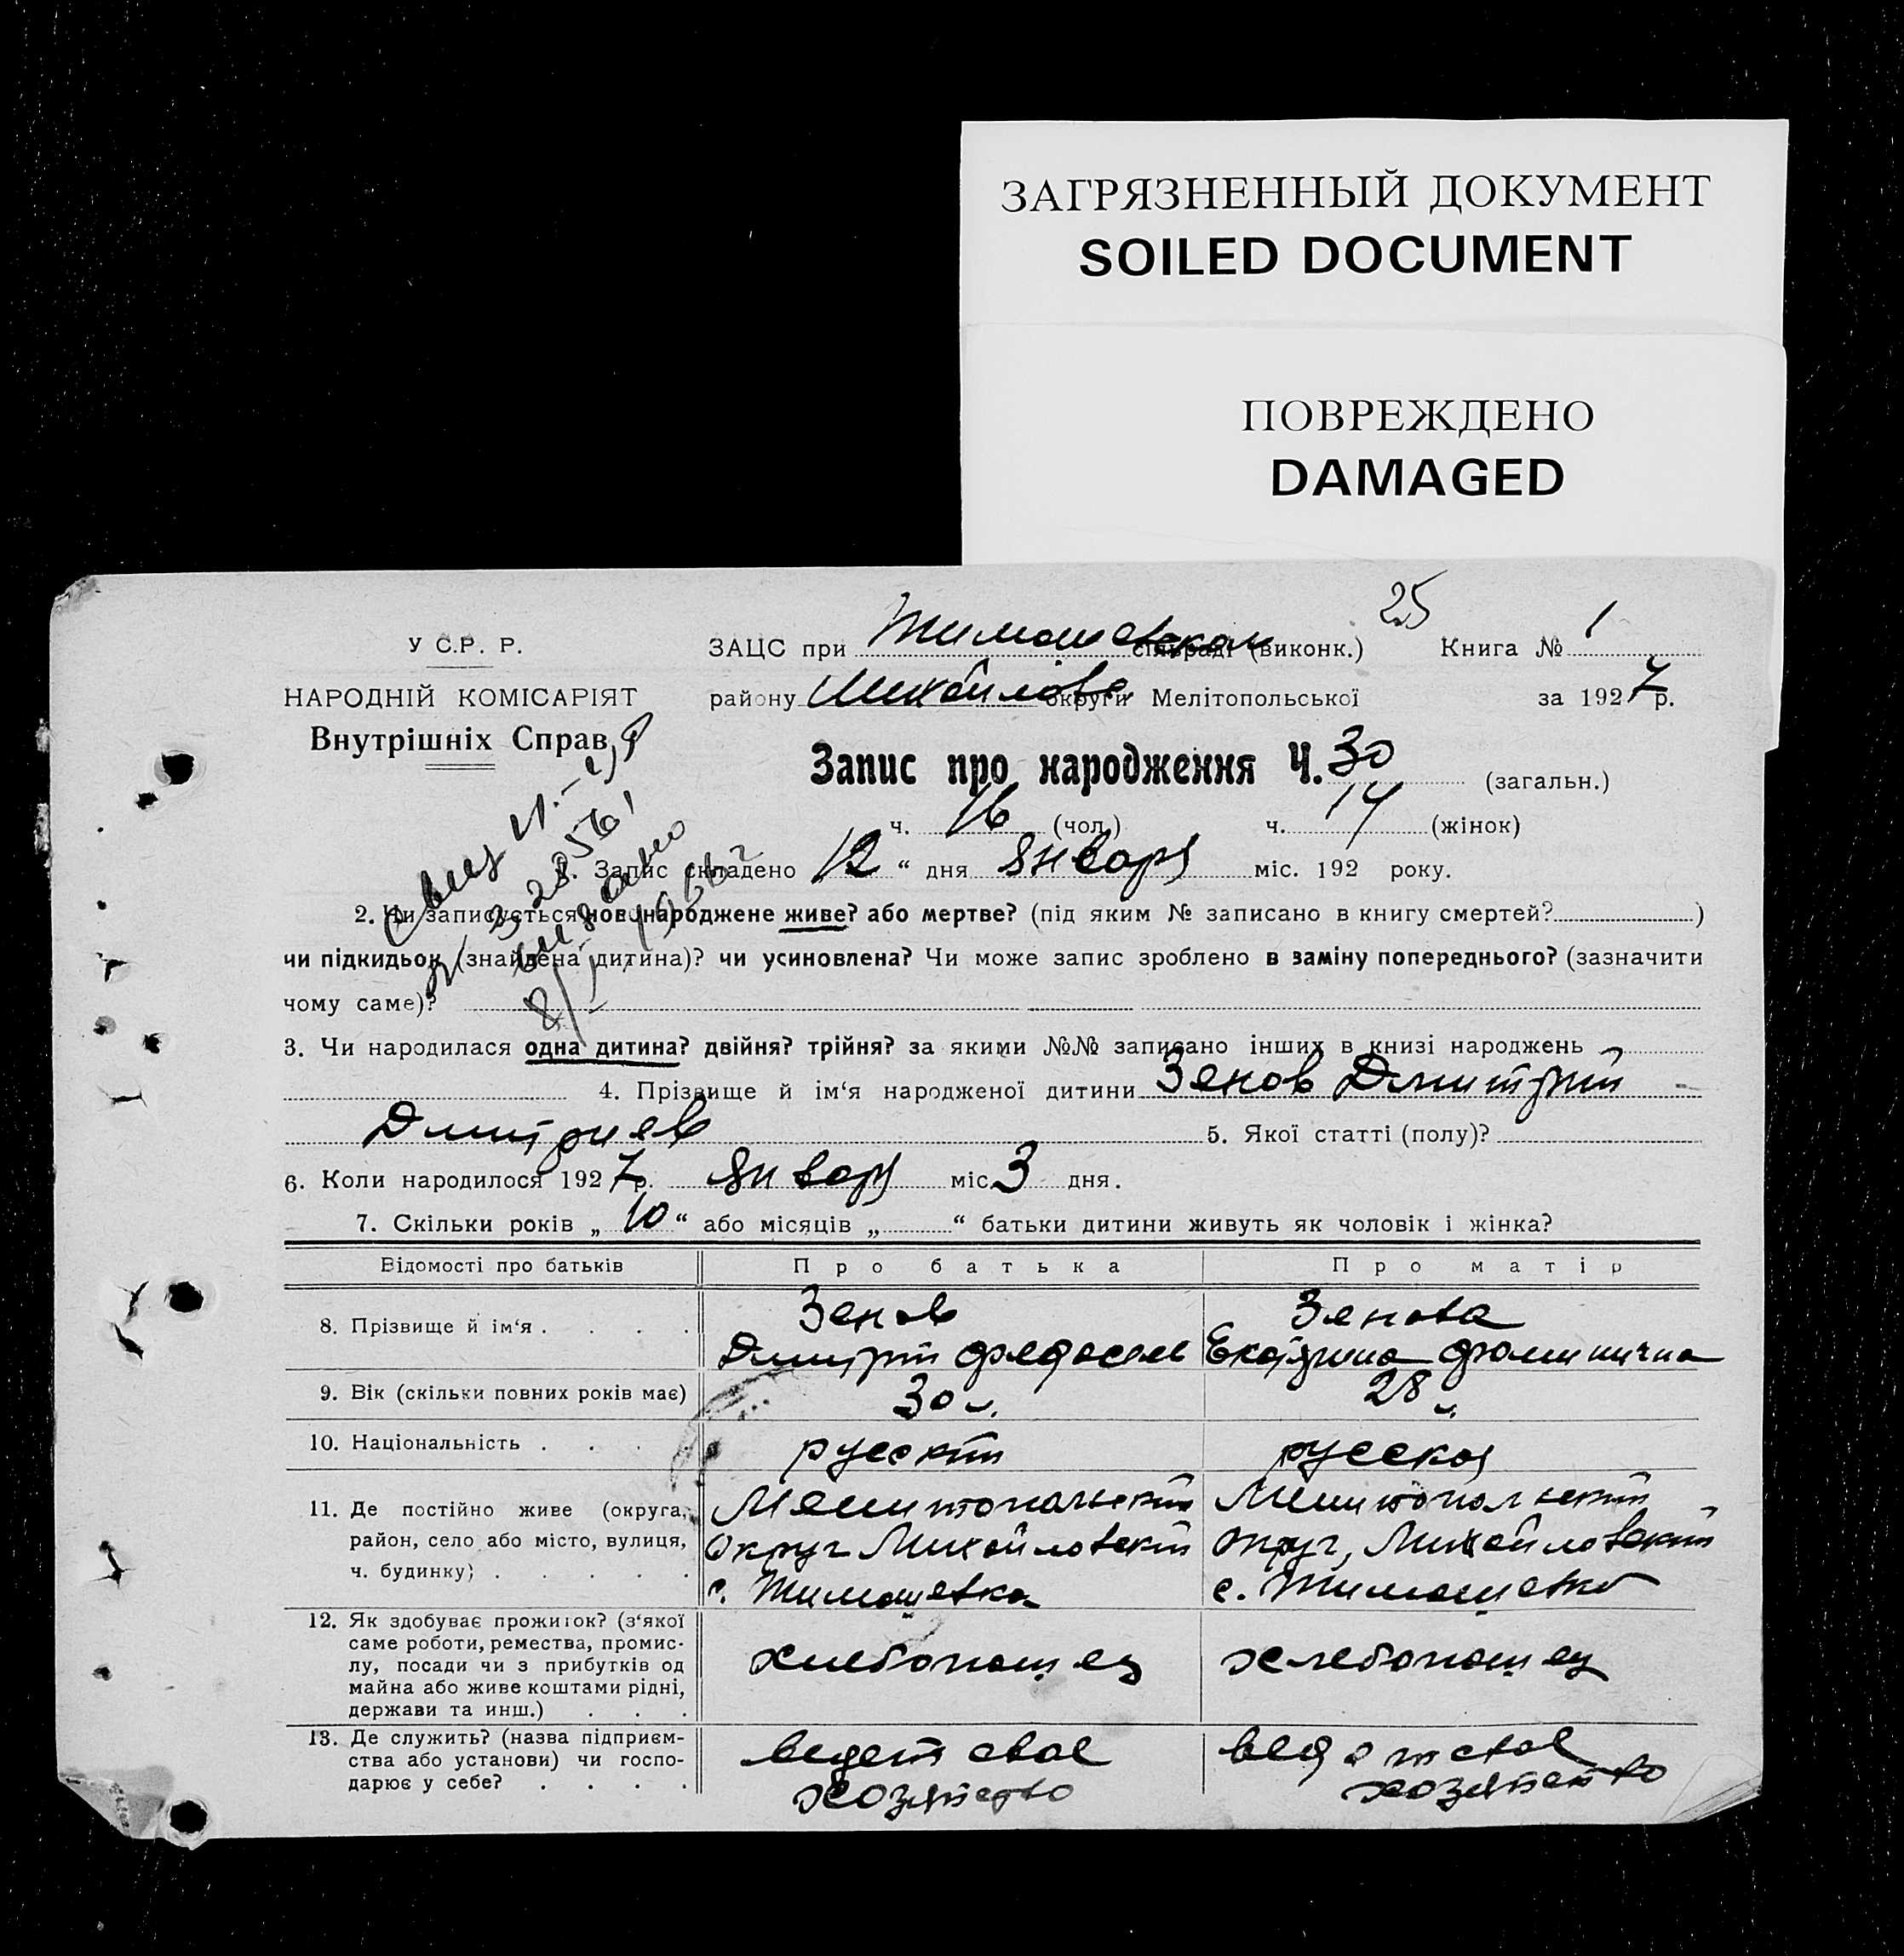 ЗАГРЯЗНЕННЫЙ ДОКУМЕНТ
SOILED DOCUMENT
ПОВРЕЖДЕНО
DAMAGED
25
У С.Р. Р.
ЗАЦС при Тимошевском сільраді (виконк.) Книга № 1
НАРОДНІЙ КОМІСАРІЯТ
району Михайлов округи Мелітопольської за 1927 р.
Внутрішніх Справ
Запис про народження Ч. 30 (загальн.)
ч. 16 (чол.) ч. 14 (жінок)
1. Запис складено 12 “ дня января міс. 192 року.
2. Чи записується новонароджене живе? або мертве? (під яким № записано в книгу смертей? )
чи підкидьок (знайдена дитина)? чи усиновлена? Чи може запис зроблено в заміну попереднього? (зазначити
чому саме)?
3. Чи народилася одна дитина? двійня? трійня? за якими №№ записано інших в книзі народжень
4. Прізвище й ім‘я народженої дитини Зенов Дмитрий
Дмитриев 5. Якої статті (полу)?
6. Коли народилося 1927 р. январ міс. 3 дня.
7. Скільки років „ 10 “ або місяців „ “ батьки дитини живуть як чоловік і жінка?
Відомості про батьків Про батька Про матір
8. Прізвище й ім‘я . . . .
Зенов
Дмитрий
Зенова
Екатерина
9. Вік (скільки повних років має)
30 л.
28 л.
10. Національність . . .
русский
русская
11. Де постійно живе (округа,
район, село або місто, вулиця,
ч. будинку) . . . . .
Мелитопольский
округ Михайловский
с. Тимошевка
Мелитопольский
округ, Михайловский
с. Тимошевка
12. Як здобуває прожиток? (з‘якої
саме роботи, ремества, промис-
лу, посади чи з прибутків од
майна або живе коштами рідні,
держави та инш.) . . .
хлебопашец
хлебопашец
13. Де служить? (назва підприєм-
ства або установи) чи госпо-
дарює у себе? . . . .
ведет свое
хозяйство
ведет свое
хозяйство